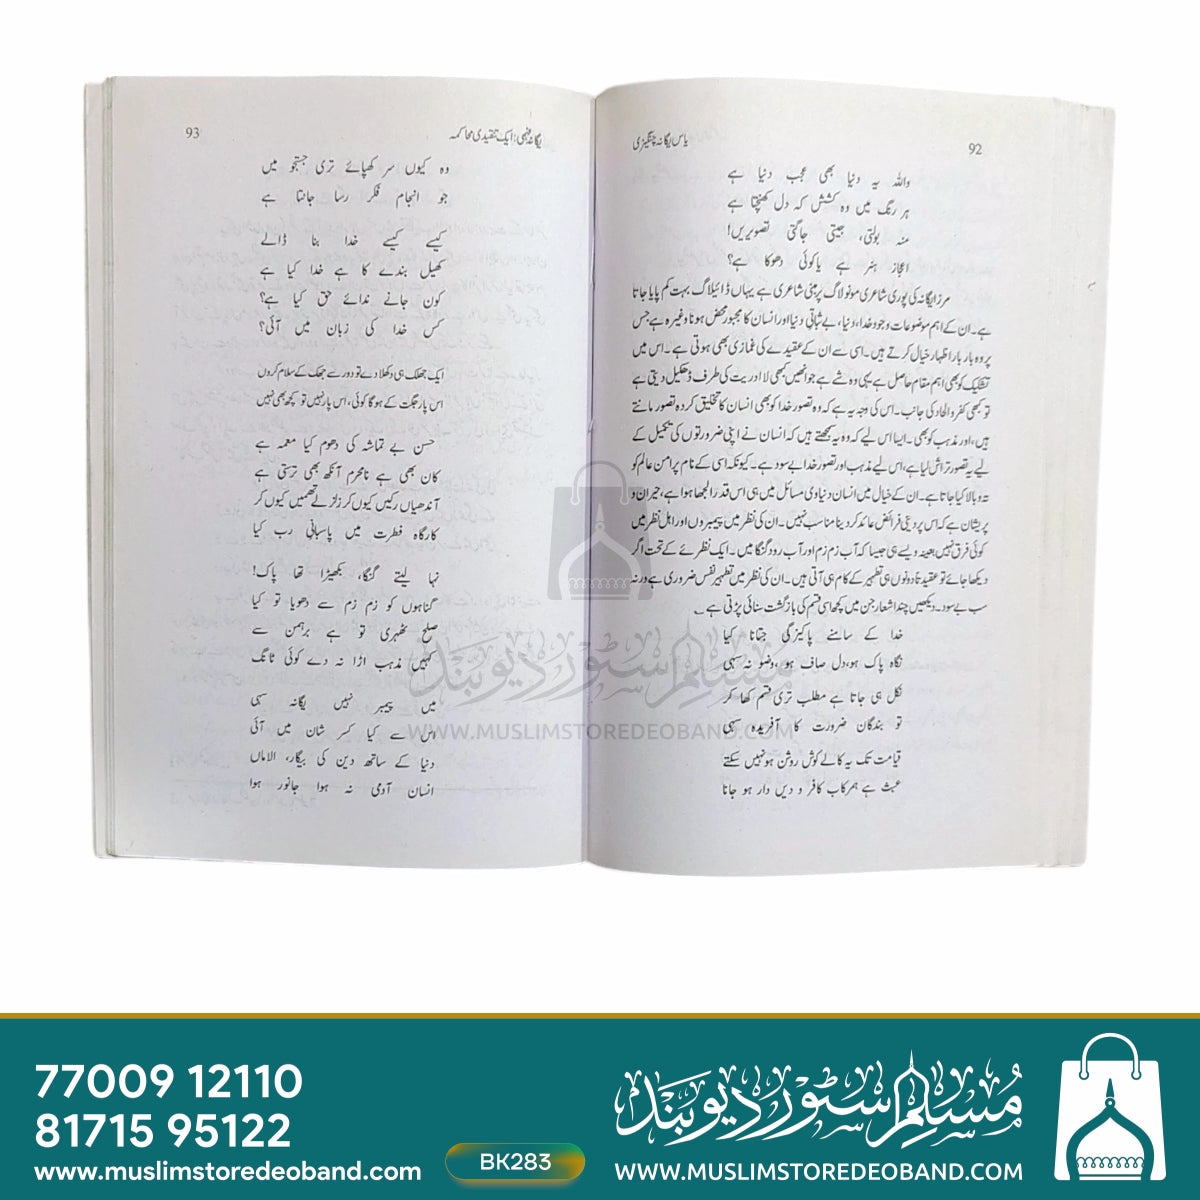 92
یاس یگانہ چنگیزی
واللہ یہ دنیا بھی عجب دنیا ہے
ہر رنگ میں وہ کشش کہ دل کھنچتا ہے
منہ بولتی، جیتی جاگتی تصویریں!
اعجاز ہنر ہے یا کوئی دھوکا ہے؟
مرزا یگانہ کی پوری شاعری مونولاگ پر مبنی شاعری ہے یہاں ڈائیلاگ بہت کم پایا جاتا
ہے۔ ان کے اہم موضوعات وجود خدا، دنیا، بے ثباتی دنیا اور انسان کا مجبور محض ہونا وغیرہ ہے جس
پر وہ بار بار اظہار خیال کرتے ہیں۔ اسی سے ان کے عقیدے کی غمازی بھی ہوتی ہے۔ اس میں
تشکیک کو بھی اہم مقام حاصل ہے یہی وہ شے ہے جو انھیں کبھی لاادریت کی طرف ڈھکیل دیتی ہے
تو کبھی کفر و الحاد کی جانب۔ اس کی وجہ یہ ہے کہ وہ تصور خدا کو بھی انسان کا تخلیق کردہ تصور مانتے
ہیں، اور مذہب کو بھی۔ ایسا اس لیے کہ وہ یہ سمجھتے ہیں کہ انسان نے اپنی ضرورتوں کی تکمیل کے
لیے یہ تصور تراش لیا ہے، اس لیے مذہب اور تصور خدا بے سود ہے۔ کیونکہ اسی کے نام پر امن عالم کو
تہ و بالا کیا جاتا ہے۔ ان کے خیال میں انسان دنیاوی مسائل میں ہی اس قدر الجھا ہوا ہے، حیران و
پریشان ہے کہ اس پر دینی فرائض عائد کر دینا مناسب نہیں۔ ان کی نظر میں پیمبروں اور اہل نظر میں
کوئی فرق نہیں بعینہ ویسے ہی جیسا کہ آب زم زم اور آب رود گنگا میں۔ ایک نظرئے کے تحت اگر
دیکھا جائے تو عقیدتاً دونوں ہی تطہیر کے کام ہی آتی ہیں۔ ان کی نظر میں تطہیر نفس ضروری ہے ورنہ
سب بے سود۔ دیکھیں چند اشعار جن میں کچھ اسی قسم کی بازگشت سنائی پڑتی ہے۔
خدا کے سامنے پاکیزگی جتانا کیا
نگاہ پاک ہو، دل صاف ہو، وضو نہ سہی
نکل ہی جاتا ہے مطلب تری قسم کھا کر
تو بندگان ضرورت کا آفریدہ سہی
قیامت تک یہ کالے کوش روشن ہو نہیں سکتے
عبث ہے ہمرکاب کافر و دیں دار ہو جانا
یگانہ فہمی: ایک تنقیدی محاکمہ
93
وہ کیوں سر کھپائے تری جستجو میں
جو انجام فکر رسا جانتا ہے
کیسے کیسے خدا بنا ڈالے
کھیل بندے کا ہے خدا کیا ہے
کون جانے ندائے حق کیا ہے؟
کس خدا کی زبان میں آئی؟
ایک جھلک ہی دکھلا دے تو دور سے جھک کے سلام کروں
اس پار جگت کے ہوگا کوئی، اس پار نہیں تو کچھ بھی نہیں
حسن بے تماشہ کی دھوم کیا معمہ ہے
کان بھی ہے نامحرم آنکھ بھی ترستی ہے
آندھیاں رکیں کیوں کر زلزلے تھمیں کیوں کر
کارگاہ فطرت میں پاسبانی رب کیا
نہا لیتے گنگا، بکھیڑا تھا پاک!
گناہوں کو زم زم سے دھویا تو کیا
صلح ٹھہری تو ہے برہمن سے
کہیں مذہب اڑا نہ دے کوئی ٹانگ
میں پیمبر نہیں یگانہ سہی
اس سے کیا کسر شان میں آئی
دنیا کے ساتھ دین کی بیگار، الاماں
انسان آدمی نہ ہوا جانور ہوا
مسلم سٹور دیوبند
WWW.MUSLIMSTOREDEOBAND.COM
77009 12110
81715 95122
www.muslimstoredeoband.com
BK283
مسلم سٹور دیوبند
WWW.MUSLIMSTOREDEOBAND.COM